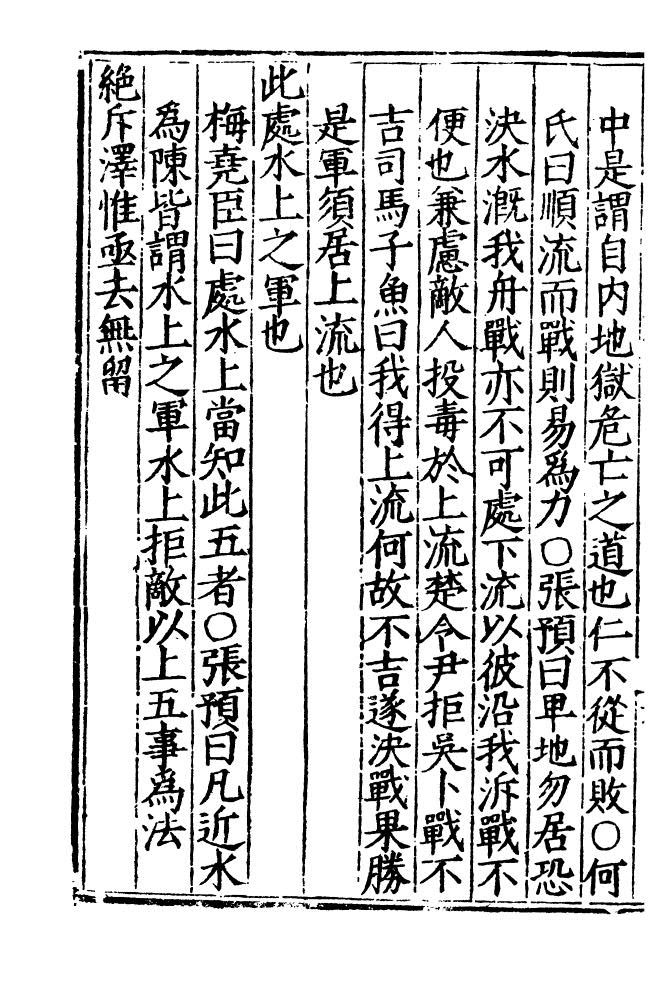 中是謂自内地獄危亡之道也仁不從而敗○何
氏曰順流而戰則易爲力○張預曰卑地勿居恐
決水溉我舟戰亦不可處下流以彼沿我泝戰不
便也兼慮敵人投毒於上流楚令尹拒吳卜戰不
吉司馬子魚曰我得上流何故不吉遂決戰果勝
是軍須居上流也
此處水上之軍也
梅堯臣曰處水上當知此五者○張預曰凡近水
爲陳皆謂水上之軍水上拒敵以上五事爲法
絶斥澤惟亟去無留